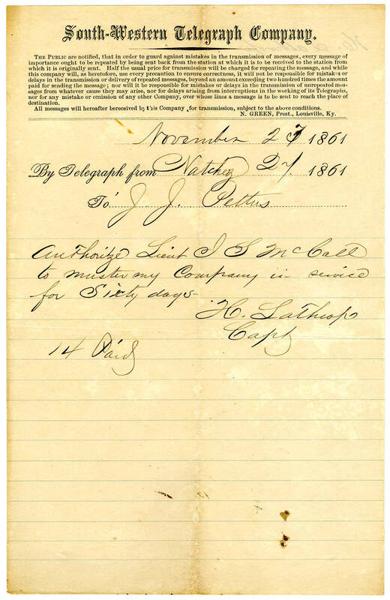 South-Western Telegraph Company.
THE PUBLIC are notified, that in order to guard against mistakes in the transmission of messages, every message of
importance ought to be repeated by being sent back from the station at which it is to be received to the station from
which it is originally sent. Half the usual price for transmission will be charged for repeating the message, and while
this company will, as heretofore, use every precaution to ensure correctness, it will not be responsible for mistakes or
delays in the transmission or delivery of repeated messages, beyond an amount exceeding two hundred times the amount
paid for sending the message; nor will it be responsible for mistakes or delays in the transmission of unrepeated mess-
ages from whatever cause they may arise, nor for delays arising from interruptions in the working of its Telegraphs,
nor for any mistake or omission of any other Company, over whose lines a message is to be sent to reach the place of
destination.
All messages will hereafter be received by this Company for transmission, subject to the above conditions.
N. GREEN, Prest., Louisville, Ky.
November 27 1861
By Telegraph from Natchez 27 1861
To J. J. Pettus
Authorize Lieut J S McCall
to muster my Company in service
for Sixty days
H. Lathrop
Capt
14 Paid